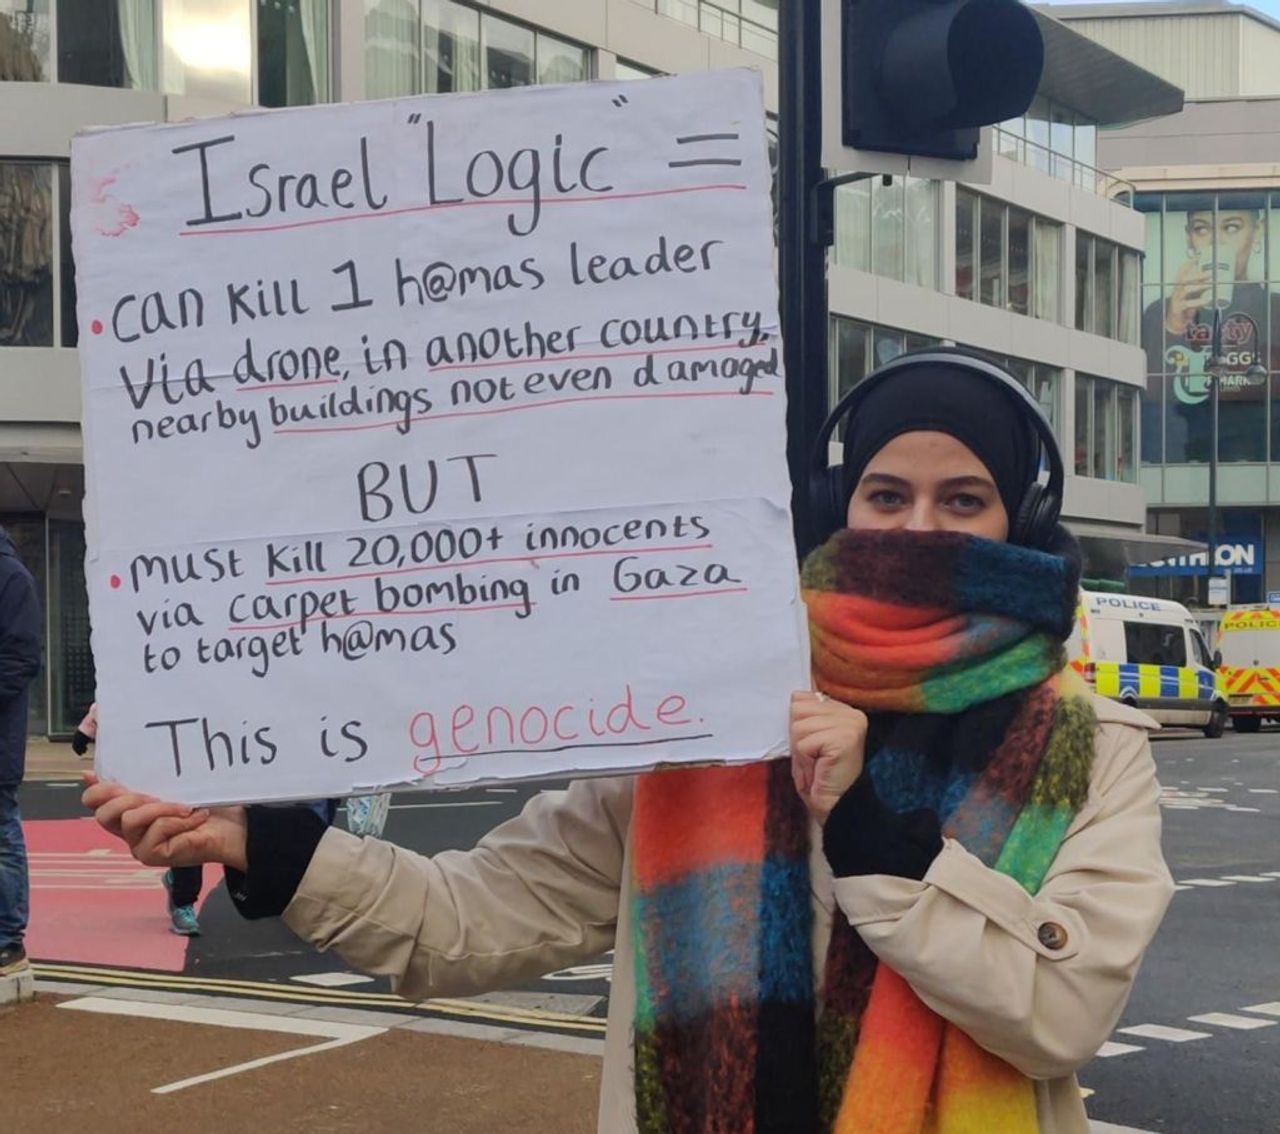 Israel "Logic" =
• can kill 1 h@mas leader
via drone, in another country,
nearby buildings not even damaged
BUT
• must kill 20,000+ innocents
via carpet bombing in Gaza
to target h@mas
This is genocide.
tasty
POLICE